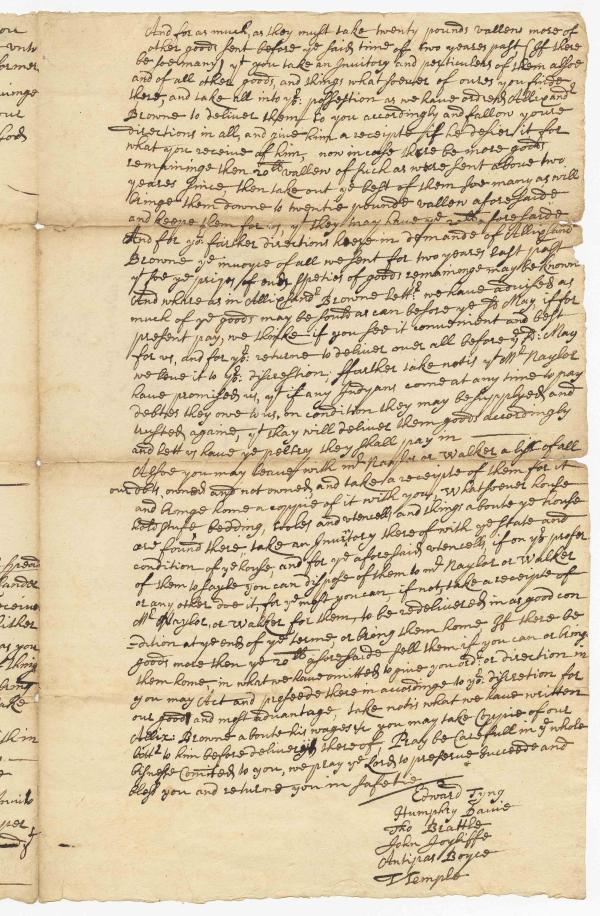 And for as much, as they must take twenty pounds vallew more of
other goods sent before ye said time of two yeares past (If there
be soe many) yt you take an Invitory and perticulers of them allsoe
and of all other goods, and things what soever of oures you finde
there, and take all into yor possestion as we have ordred Allixand
Browne to deliver them to you accordingly and follow youre
directions in all, and give him a receipte if he desier it for
what you receive of him, now in case there be more goods
remaininge then 20 vallew of such as were sent above two
yeares since, then take out ye best of them soe many as will
bringe them downe to twentie pounds vallew aforesaide
and keepe them for us, yt they may have ye 20 aforesaide
And for yor further directions here in demande of Allixand
Browne ye invoyce of all we sent for two yeares last past
yt soe ye prizes of ech speties of goods remaininge may be known
And where as in Allixandr Browne lettr we have advised as
much of ye goods may be sould as can before ye May, if for
present pay, we thinke if you see it convenient and best
for us, and for yor returne to deliver over all before ye May
we leve it to yor discrestion: ffurther take notis yt Mr Naylor
have promised us, yt if any Indyans come at any time to pay
debtes they owe to us, on condition they may be supplyed and
trusted again, yt thay will deliver them goods accordingly
and lett us have ye peltry they shall pay in
Allsoe you may leave with mr Naylor or Walker a list of all
our debts owned and not owned, and take a receipte of them for it
and bringe home a coppie of it with you, Whatsoever house
hold stufe bedding, tooles and utencells and things aboute ye house
are found there, take an Invitory there of with ye state and
condition of ye house, and for ye aforesaid utencells, if any profer
of them to sayle you can dispose of them to mr Naylor or Walker
or any other doe it, for ye most you can, if not, take a receipte of
Mr Naylor, or Walker for them, to be redelivered in as good con
dition at ye end of ye terme or bring them home If there be
goods more then ye 20 aforesaide sell them if you can or bring
them home, in what we have omitted to give you ordr or direction in
you may Act and proseede there in accordinge to yor discretion for
our good and most advantage, take notis what we have written
Allix: Browne aboute his wages &c you may take Coppie of our
lettr to him before delivery there of, Pray be Carefull in ye whole
bisnesse Comited to you, we pray ye Lord to preserve succeede and
bless you and returne you in safetie
Edward Tyng
Humphry Davie
Tho Brattle
John Joyliffe
Antipas Boyce
T Temple